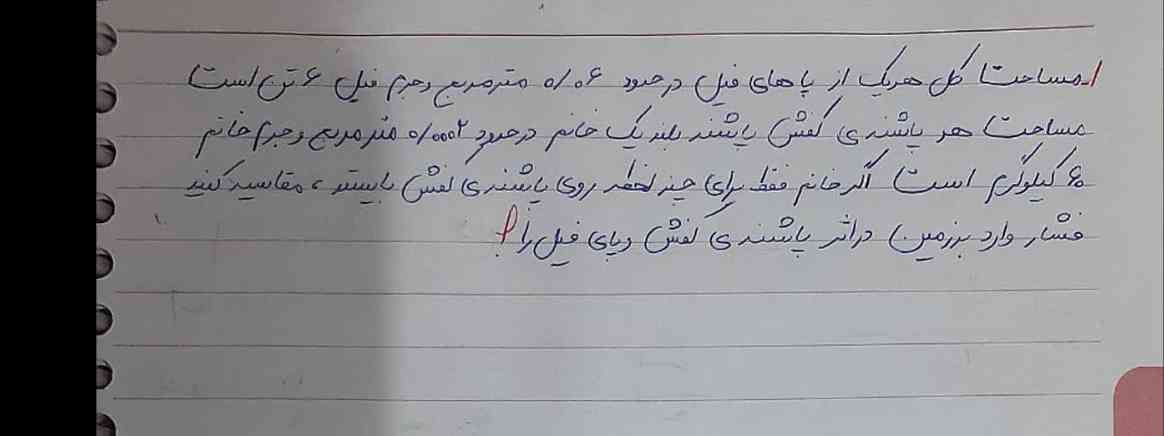 1ـ مساحت کل هریک از پاهای فیل در حدود ۰/۰۶ مترمربع و جرم فیل ۶ تن است
مساحت هر پاشنه ی کفش پاشنه بلند یک خانم در حدود ۰/۰۰۰۲ متر مربع و جرم خانم
۶۰ کیلوگرم است اگر خانم فقط برای چند لحظه روی پاشنه ی کفش بایستد، مقایسه کنید
فشار وارد بر زمین در اثر پاشنه ی کفش و پای فیل را؟